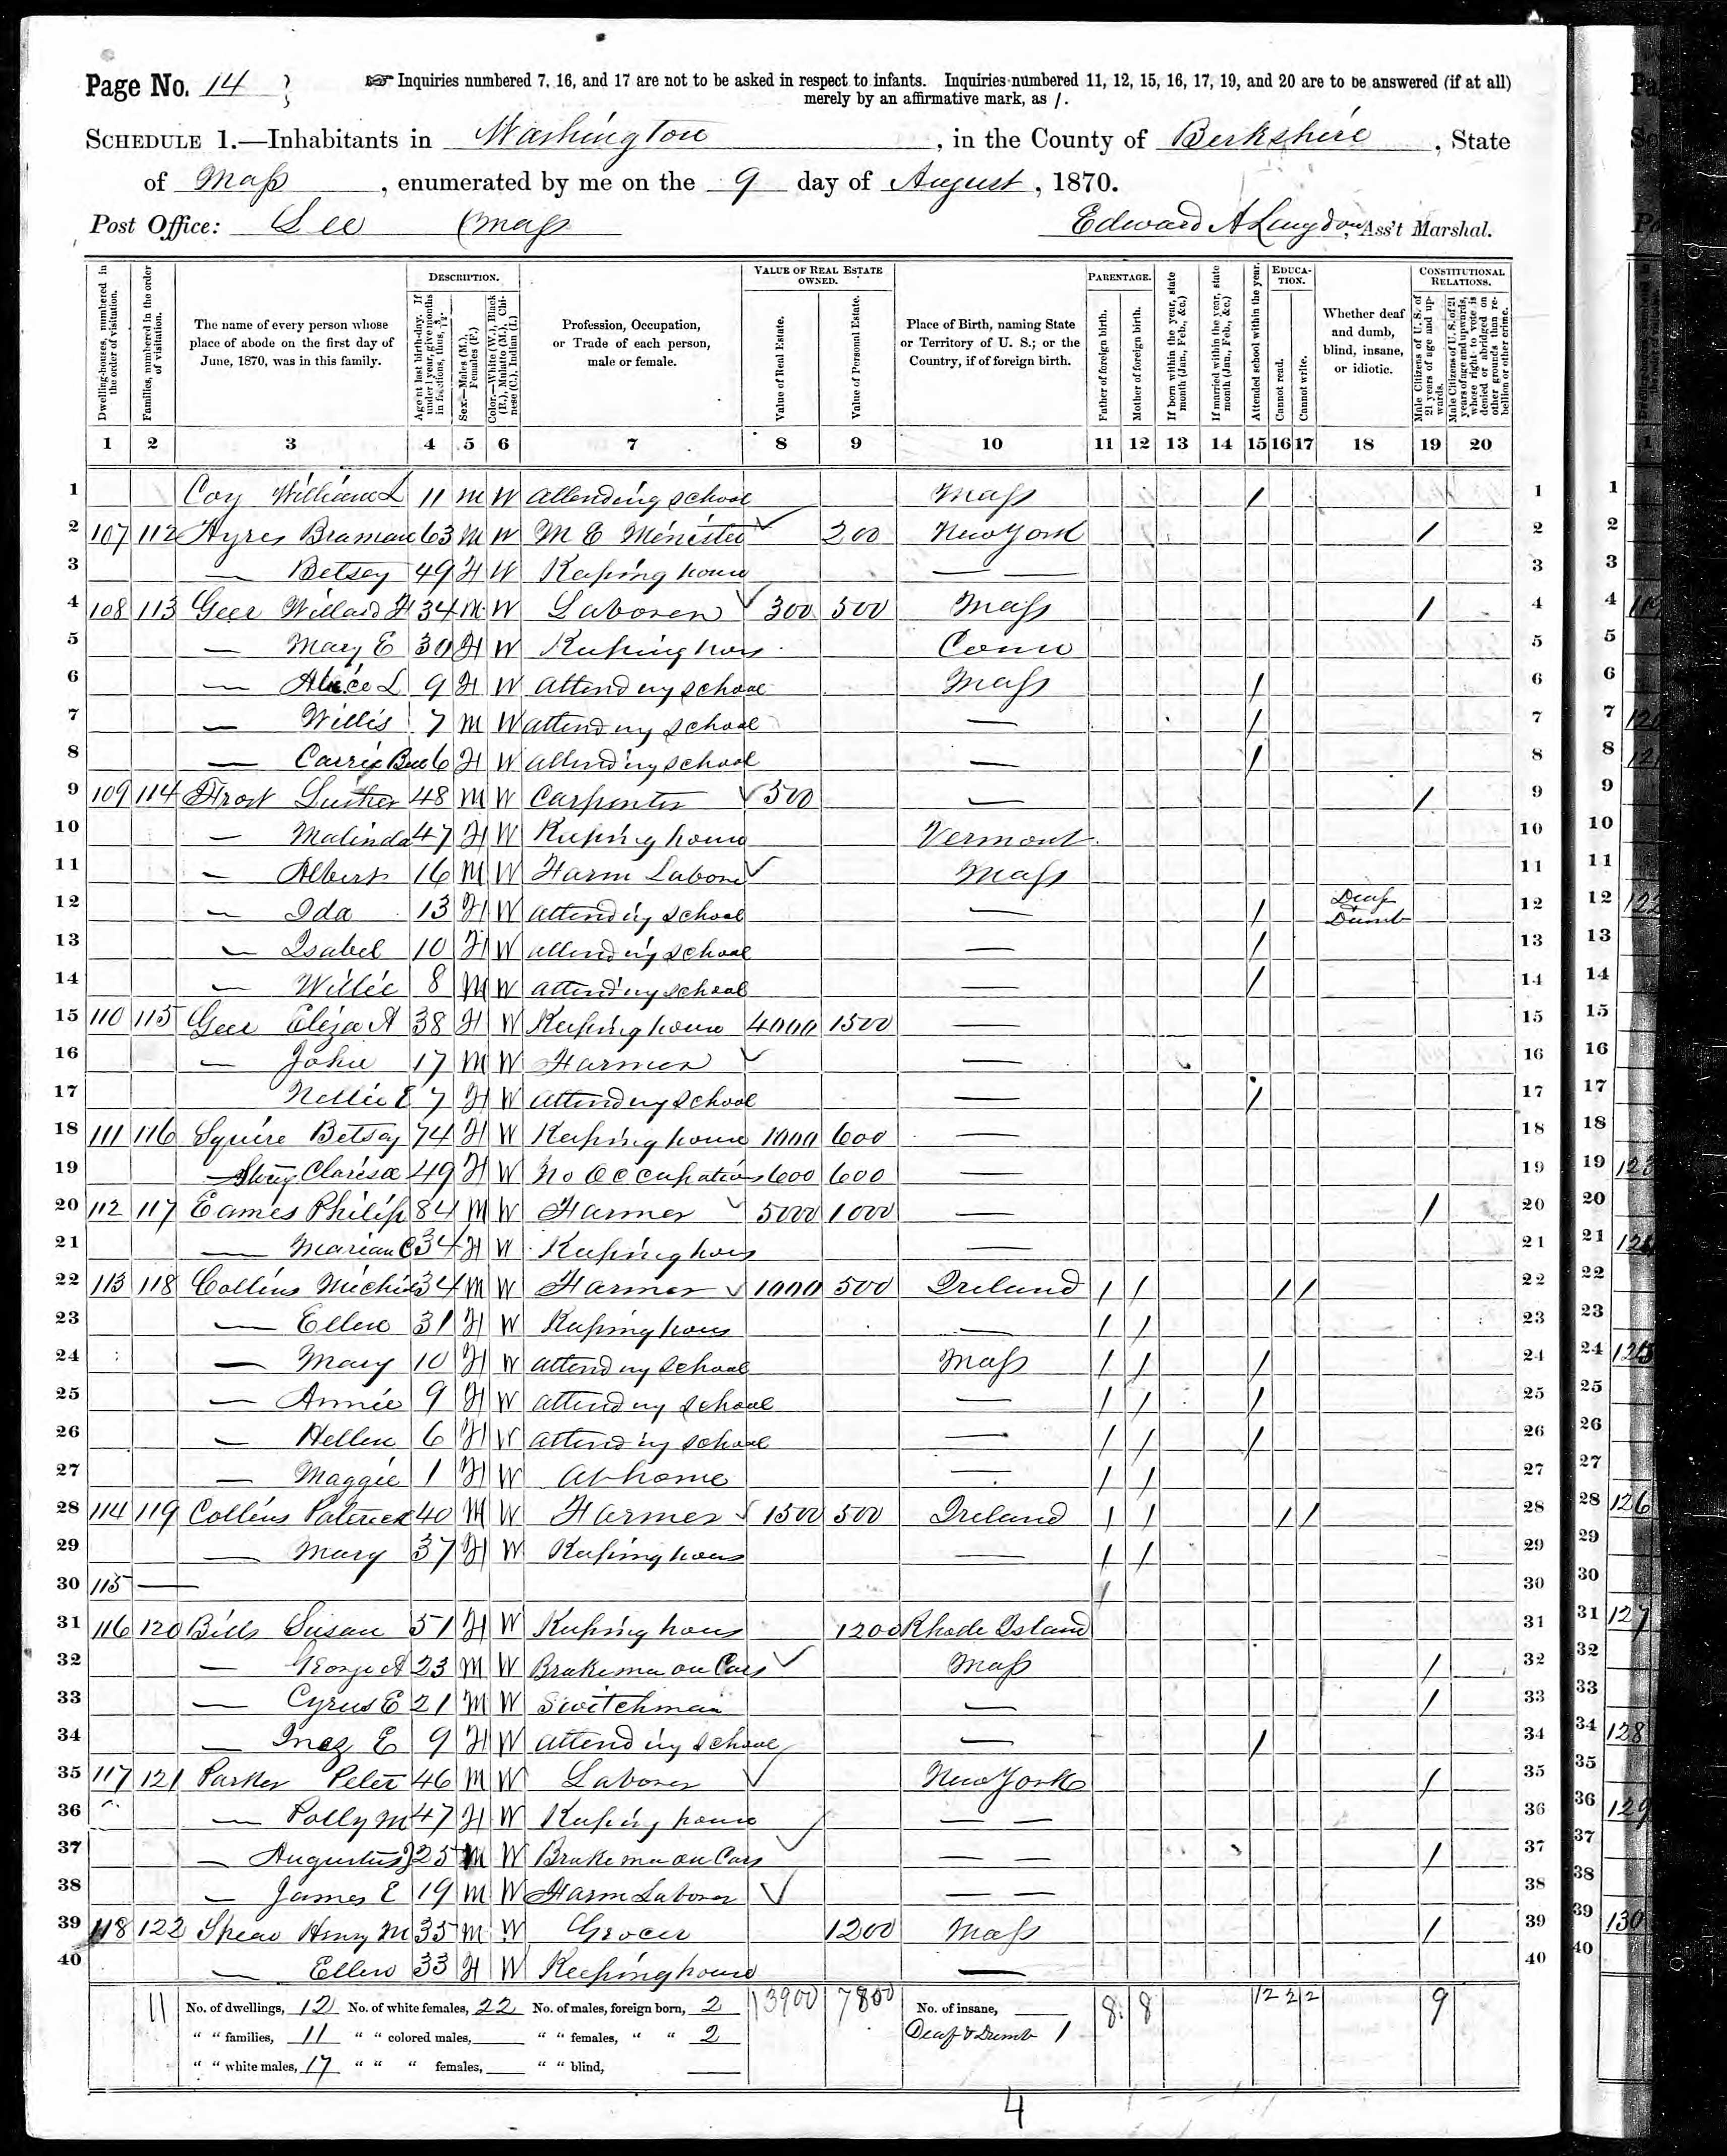 Page No. 14
☞ Inquiries numbered 7, 16, and 17 are not to be asked in respect to infants. Inquiries numbered 11, 12, 15, 16, 17, 19, and 20 are to be answered (if at all)
merely by an affirmative mark, as /.
SCHEDULE 1.—Inhabitants in Washington, in the County of Berkshire, State
of Mass, enumerated by me on the 9 day of August, 1870.
Post Office: Lee Mass
Edward A Langdon, Ass't Marshal.
Dwelling-houses, numbered in the order of visitation.
Families, numbered in the order of visitation.
The name of every person whose place of abode on the first day of June, 1870, was in this family.
DESCRIPTION.
Age at last birth-day. If under 1 year, give months in fractions, thus, 3/12
Sex.—Males (M.), Females (F.)
Color.—White (W.), Black (B.), Mulatto (M.), Chinese (C.), Indian (I.)
Profession, Occupation, or Trade of each person, male or female.
VALUE OF REAL ESTATE OWNED.
Value of Real Estate.
Value of Personal Estate.
Place of Birth, naming State or Territory of U. S.; or the Country, if of foreign birth.
PARENTAGE.
Father of foreign birth.
Mother of foreign birth.
If born within the year, state month (Jan., Feb., &c.)
If married within the year, state month (Jan., Feb., &c.)
Attended school within the year.
EDUCATION.
Cannot read.
Cannot write.
Whether deaf and dumb, blind, insane, or idiotic.
CONSTITUTIONAL RELATIONS.
Male Citizens of U. S. of 21 years of age and upwards.
Male Citizens of U. S. of 21 years of age and upwards, where right to vote is denied or abridged on other grounds than rebellion or other crime.
1 2 3 4 5 6 7 8 9 10 11 12 13 14 15 16 17 18 19 20
1 Coy William L 11 M W Attending school Mass / 1
2 107 112 Ayres Braman 63 M W M E Minister 200 New York / 2
3 — Betsey 49 F W Keeping house — — 3
4 108 113 Geer Willard H 34 M W Laborer 300 500 Mass / 4
5 — Mary E 30 F W Keeping hous Conn 5
6 — Alice L 9 F W attending school Mass / 6
7 — Willis 7 M W attending school — / 7
8 — Carrie 6 F W attending school — / 8
9 109 114 Frost Luther 48 M W Carpenter 500 — / 9
10 — Malinda 47 F W Keeping house Vermont 10
11 — Albert 16 M W Farm Labore Mass 11
12 — Ida 13 F W attending school — / Deaf & Dumb 12
13 — Isabel 10 F W attending school — / 13
14 — Willie 8 M W attending school — / 14
15 110 115 Geer Eliza A 38 F W Keeping house 4000 1500 — 15
16 — John 17 M W Farmer — 16
17 Nellie E 7 F W attending school — / 17
18 111 116 Squire Betsey 74 F W Keeping house 1000 600 — 18
19 Clarisa 49 F W No Occupation 600 600 — 19
20 112 117 Eames Philip 84 M W Farmer 5000 1000 — / 20
21 — Marian C 34 F W Keeping hous — 21
22 113 118 Collins Michiel 34 M W Farmer 1000 500 Ireland / / / / 22
23 — Ellen 31 F W Keeping hous — / / 23
24 — Mary 10 F W attending school Mass / / / 24
25 — Annie 9 F W attending school — / / / 25
26 — Hellen 6 F W attending school — / / / 26
27 — Maggie 1 F W At home — / / 27
28 114 119 Collins Paterick 40 M W Farmer 1500 500 Ireland / / / / 28
29 — Mary 37 F W Keeping hous — / / 29
30 115 — / 30
31 116 120 Bills Susan 51 F W Keeping hous 1200 Rhode Island 31
32 — George A 23 M W Brakeman on Cars Mass / 32
33 — Cyrus E 21 M W Switchman — / 33
34 — Inez E 9 F W attending school — / 34
35 117 121 Parker Peter 46 M W Laborer New York / 35
36 — Polly M 47 F W Keeping house — — 36
37 — Augustus J 25 M W Brakeman on Cars — — / 37
38 — James E 19 M W Farm Laborer — — 38
39 118 122 Spear Henry M 35 M W Grocer 1200 Mass / 39
40 — Ellen 33 F W Keeping house — 40
11 No. of dwellings, 12 No. of white females, 22 No. of males, foreign born, 2 13900 7800 No. of insane, 8 8 12 2 2 9
" " families, 11 " " colored males, " " females, " " 2 Deaf & Dumb 1
" " white males, 17 " " " females, " " blind,
4